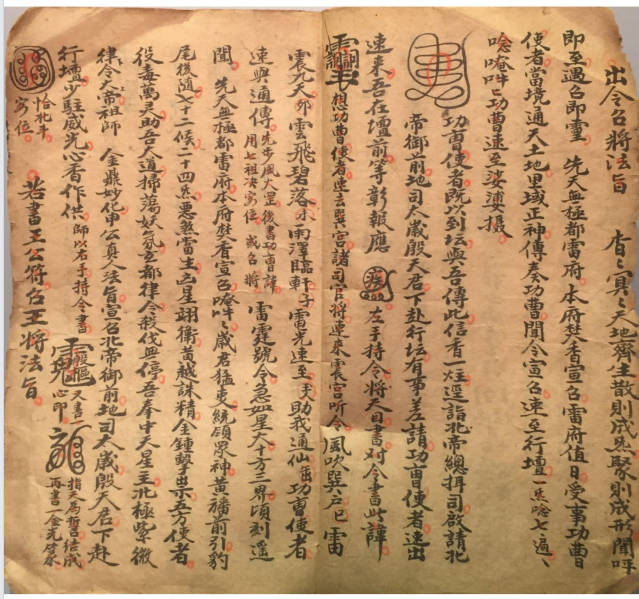 出令召將法旨　杳杳冥冥天地齊生散則成炁聚則成形聞呼
即至遇召即靈　先天無極都雷府本府焚香宣召雷府值日受事功曹
使者當境通天土地里域正神傳奏功曹聞令宣召速至行壇一炁唸七遍
唵吽吽功曹速至娑婆攝
功曹使者既以到坛與吾傳此信香一炷逕詣北帝總押司啟請北
帝御前地司太歲殷天君下赴行坛有事差請功曹使者速出
速來吾在壇前等彰報應　左手持令將天目書对令書此諱
想功曹使者速去巽宮諸司官將速來震宮听令風吹巽户巳雷
震九天卯雲飛碧落未雨澤臨軒子雷光速至天助我通仙缶功曹使者
速與通傳先步風火罡後書功曹諱用七祖决寄位或召將雷霆號令急如星火十方三界頃刻遥
聞　先天無極都雷府本府焚香宣召唵吽吽歲君猛吏統領眾神黄旛前引豹
尾後隨七十二候二十四炁悪煞雷王凶星翊衛黄越誅精金鍾擊祟五方使者
役毒萬灵助吾大道掃蕩妖氛玄都律令殺伐無停吾奉中天星主北極紫微
律令大帝祖師　金鼎妙化申公真人法旨宣召北帝御前地司太歲殷天君下赴
行壇少駐威光心香作供師以右手持令書　又書一心印　指天為誓吉結成再書一金光篆
恰北斗寄位　若書王公符召王將法旨